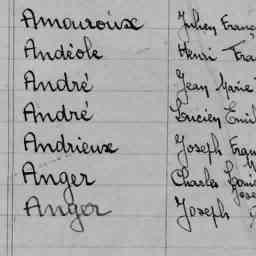 Amouroux Julien Franç
Andéole Henri Fra
André Jean Marie
André Lucien Emil
Andrieux Joseph Fran
Anger Charles Louis
Anger Joseph